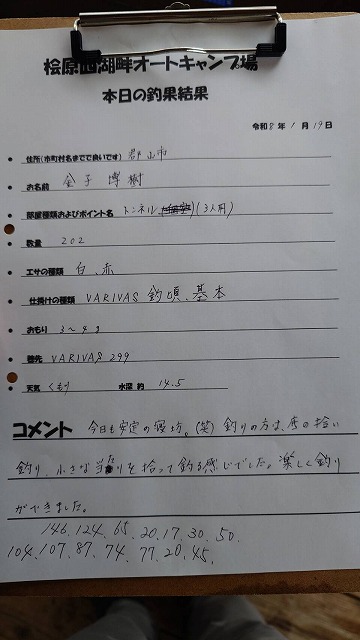 桧原西湖畔オートキャンプ場
本日の釣果結果
令和8年1月19日
住所(市町村名までで良いです) 郡山市
お名前 金子博樹
部屋種類およびポイント名 トンネル (3人用)
数量 202
エサの種類 白、赤
仕掛けの種類 VARIVAS 釣頃、基本
おもり 3〜4g
穂先 VARIVAS 299
天気 くもり 水深 約 14.5
コメント 今日も安定の寝坊。(笑) 釣りの方は、拾い
釣り、小さな当たりを拾って釣る感じでした。楽しく釣り
ができました。
146、124、65、20、17、30、50、
104、107、87、74、77、20、45、